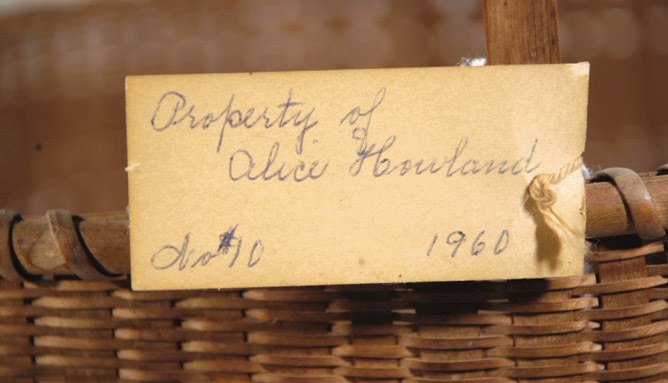 Property of
Alice Howland
No #10 1960